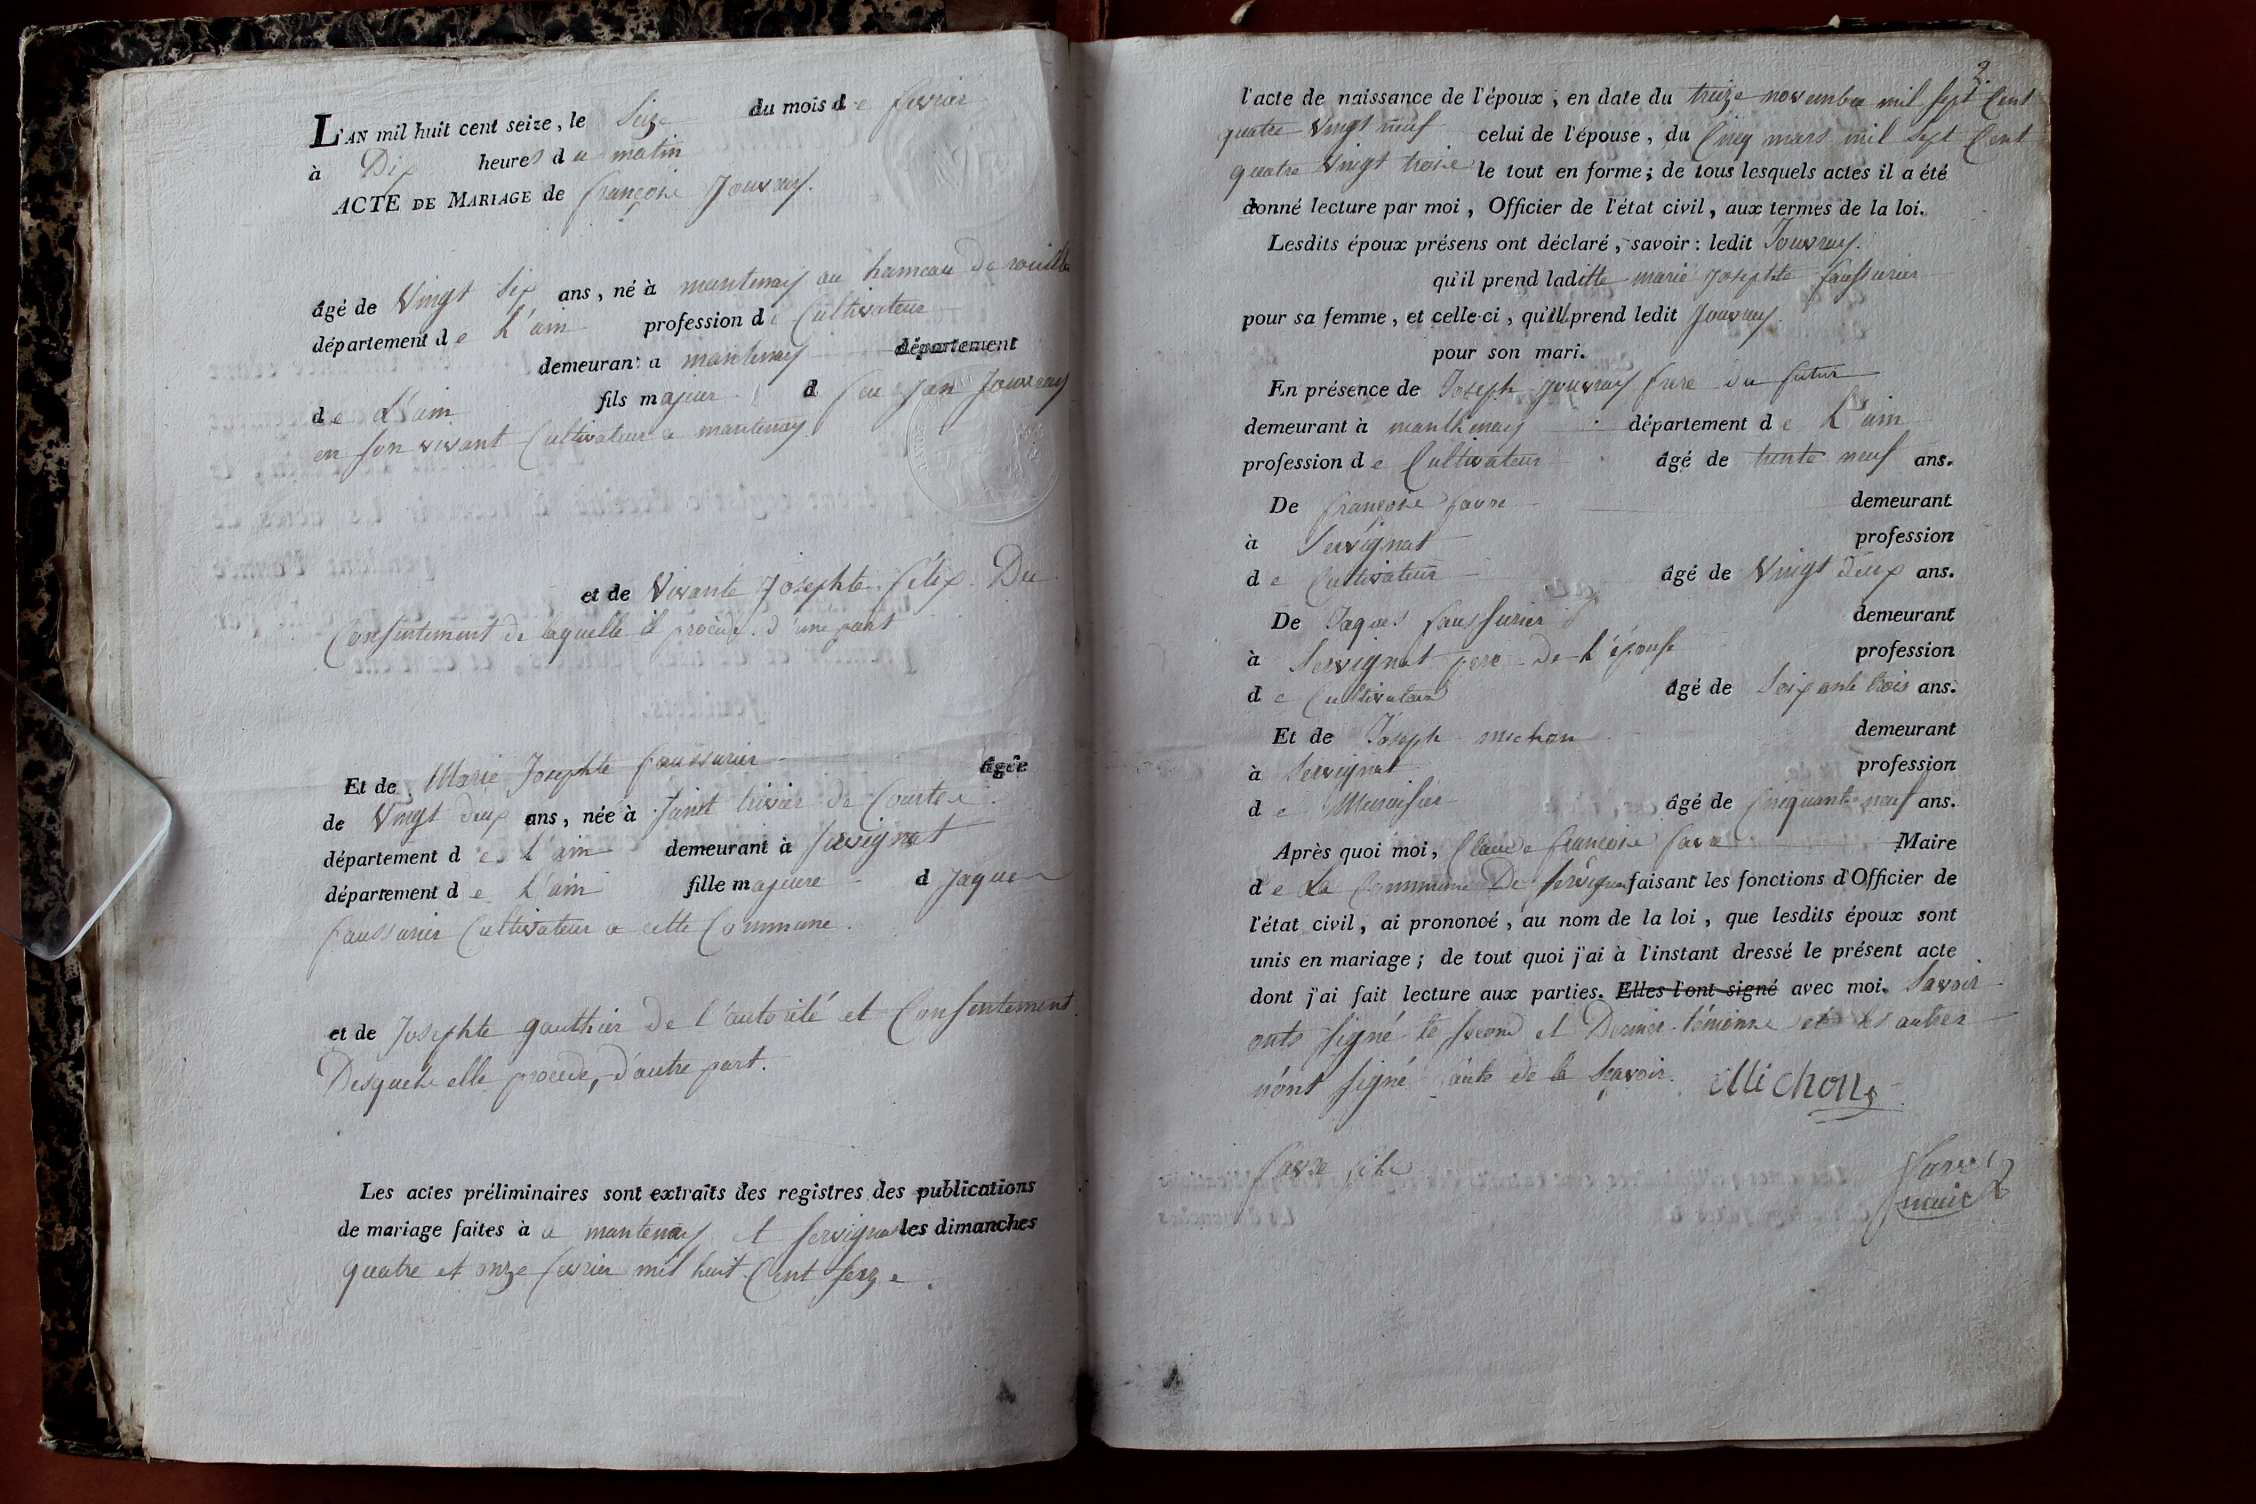 L'AN mil huit cent seize, le Seize du mois de fevrier
à Dix heures du matin
ACTE DE MARIAGE de françois Jouvray.
âgé de Vingt Six ans, né à mantenay au hameau de
département de L'ain profession de Cultivateur
demeurant a mantenay département
de L'ain fils majeur d feu Jean Jouvray
en son vivant Cultivateur a mantenay
et de Vivante Josephte félix Du
Consentement de laquelle il procède. d'une part
Et de Marie Josephte faussurier âgée
de Vingt deux ans, née à Saint trivier de Courtes
département de L'ain demeurant à servignat
département de L'ain fille majeure d Jaques
faussurier Cultivateur a cette Commune.
et de Josephte gauthier de l'autorité et Consentement
Desquels elle procede, d'autre part.
Les actes préliminaires sont extraits des registres des publications
de mariage faites à a mantenay et servignat les dimanches
quatre et onze fevrier mil huit Cent seize.
2.
l'acte de naissance de l'époux, en date du treize novembre mil sept Cent
quatre Vingt neuf celui de l'épouse, du Cinq mars mil sept Cent
quatre Vingt troise le tout en forme; de tous lesquels actes il a été
donné lecture par moi, Officier de l'état civil, aux termes de la loi.
Lesdits époux présens ont déclaré, savoir: ledit Jouvray.
qu'il prend laditte marie Josephte faussurier
pour sa femme, et celle-ci, qu'ill prend ledit Jouvray.
pour son mari.
En présence de Joseph Jouvray frere du futur
demeurant à manthenay département de L'ain
profession de Cultivateur âgé de trente neuf ans.
De françois favre demeurant
à Servignat profession
de Cultivateur âgé de Vingt deux ans.
De Jaques faussurier demeurant
à Servignat pere de L'épouse profession
de Cultivateur âgé de Soixante trois ans.
Et de Joseph michon demeurant
à Servignat profession
de Menuisier âgé de Cinquante neuf ans.
Après quoi moi, Claude françois favre Maire
de La Commune De servignat faisant les fonctions d'Officier de
l'état civil, ai prononcé, au nom de la loi, que lesdits époux sont
unis en mariage; de tout quoi j'ai à l'instant dressé le présent acte
dont j'ai fait lecture aux parties. Elles l'ont signé avec moi. Savoir
onts signé le second et Dernier témoins et les autres
n'ont signé faute de le Scavoir. Michon
favre fils
favre
maire